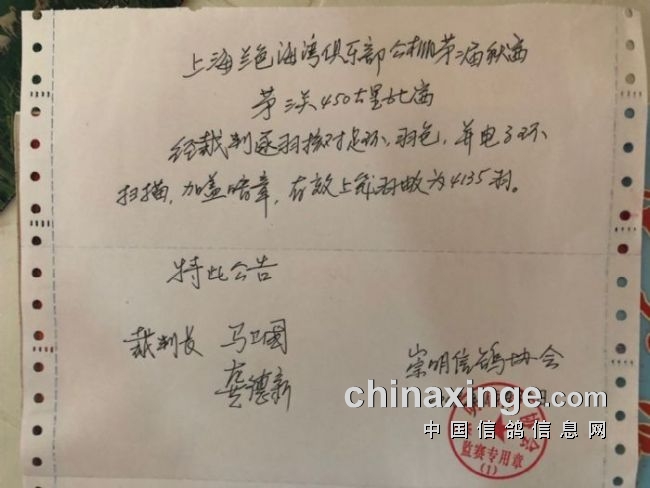 上海兰色海湾俱乐部公棚第二届秋赛
第三关450公里比赛
经裁判逐羽核对足环，羽色，并电子环
扫描，加盖暗章，有效上笼羽数为4135羽。
特此公告
裁判长 马卫国
龚德新
崇明信鸽协会
chinaxinge.com
中国信鸽信息网
监赛专用章
(1)